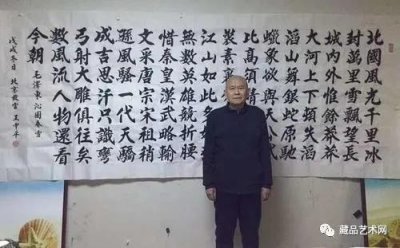 北國風光千里冰
封萬里雪飄望長
城内外惟餘莽莽
大河上下頓失滔
滔山舞銀蛇原馳
蠟象欲與天
比高須晴
裝素
江山如此
無數英雄競折腰
惜秦皇漢武略輸
文采唐宗宋祖稍
遜風騷一代天驕
成吉思汗只識彎
弓射大雕俱往矣
數風流人物還看
今朝 毛澤東沁園春雪
戊戌冬日 北京
藏品艺术网